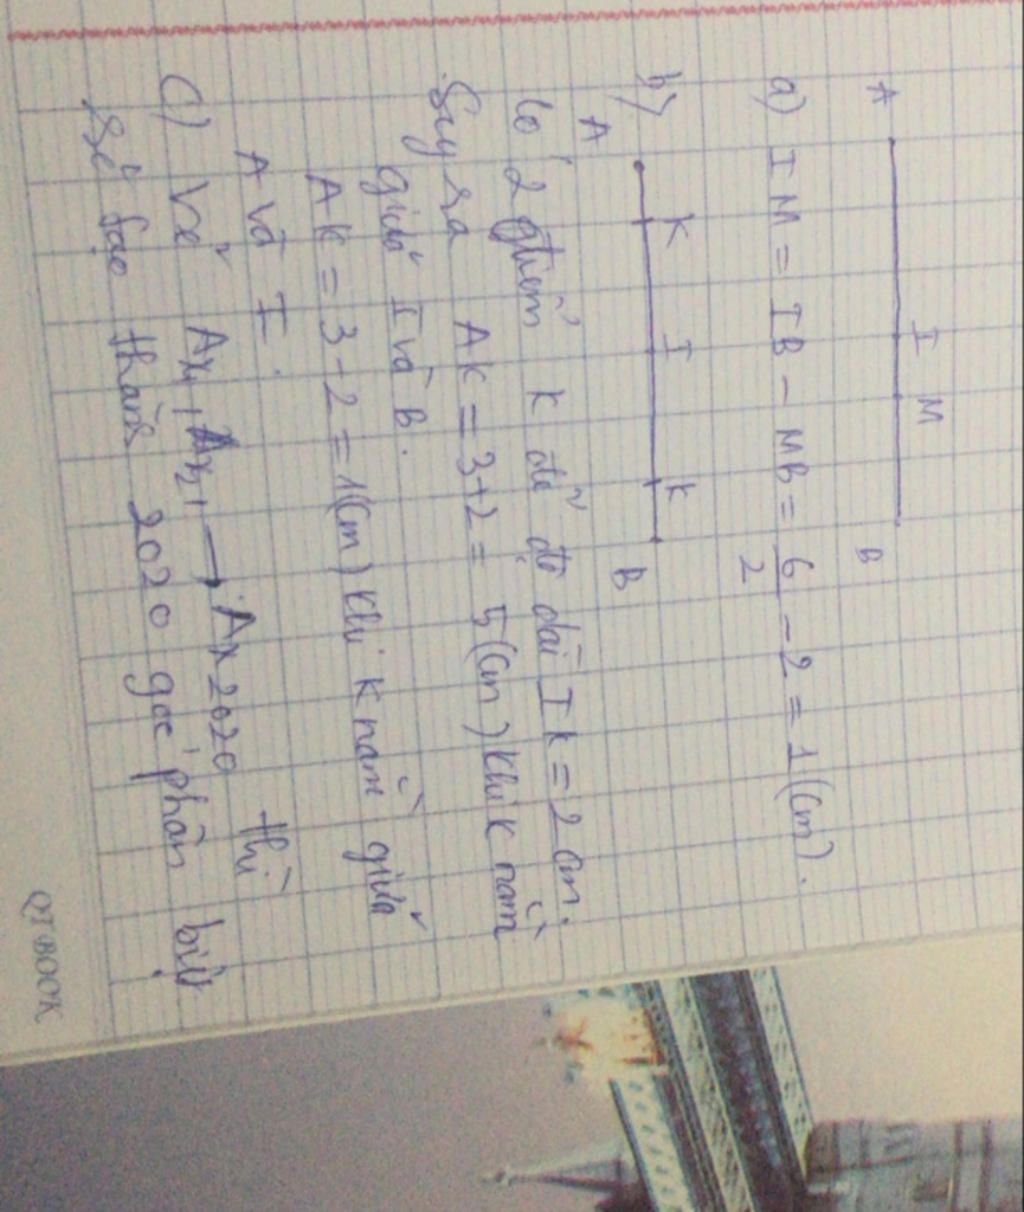 A I M B
a) IM = IB - MB = 6/2 - 2 = 1 (cm).
b) A K I K B
Có 2 điểm K để độ dài IK = 2 cm.
Suy ra AK = 3+2 = 5 (cm) khi K nằm
giữa I và B.
AK = 3-2 = 1 (cm) khi K nằm giữa
A và I.
c) Vẽ Ax1, Ax2, Ax2020 thì
Sẽ tạo thành 2020 góc phân biệt
QTBOOK